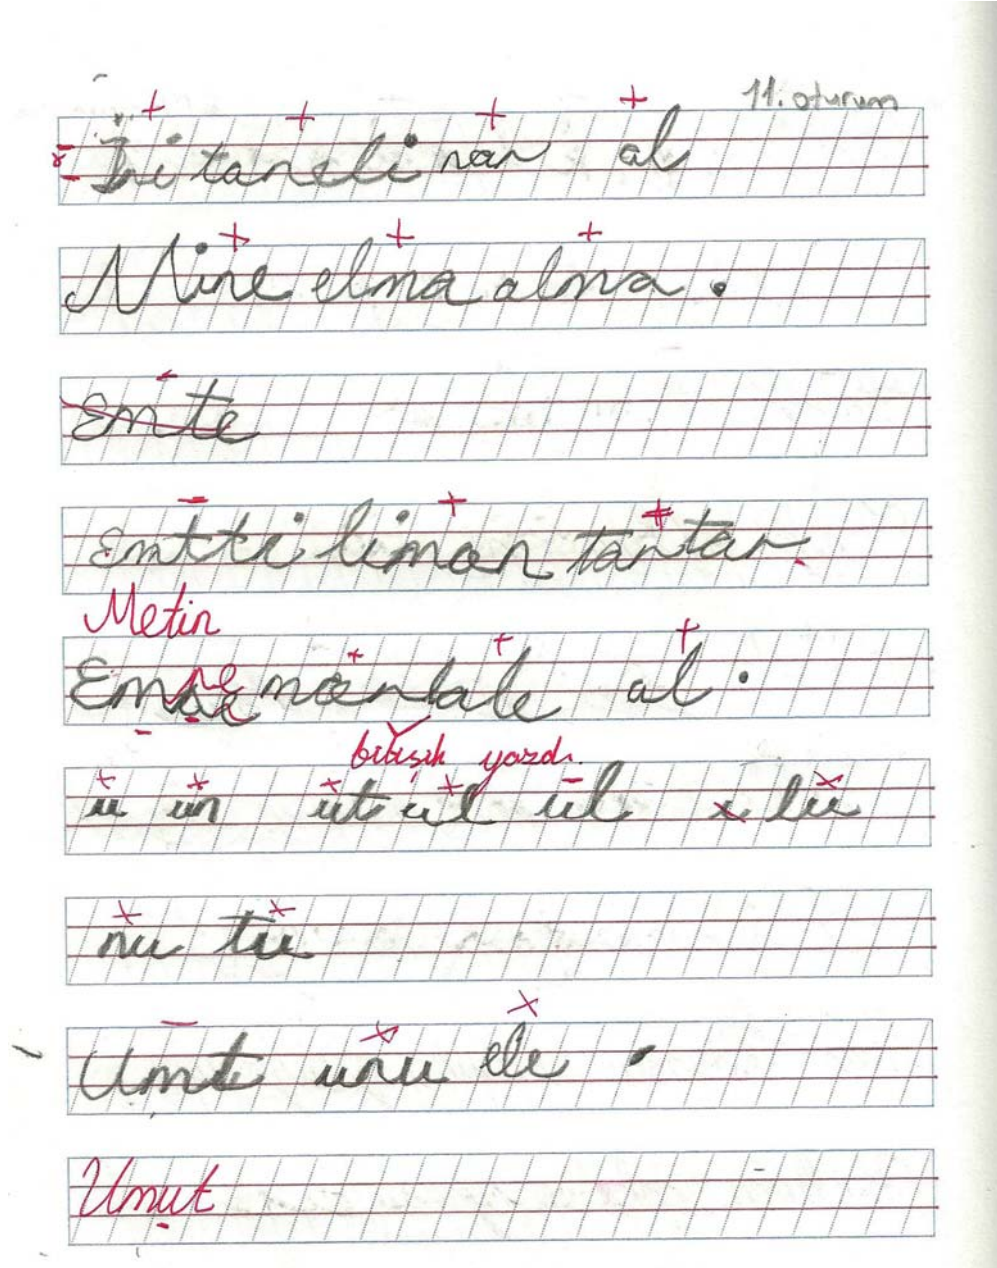 11. oturum
İri taneli nar al
Mine elma alma.
Emte
Emtti limon tartar.
Metin
mantale al.
bitişik yazdı.
ü ün üt ül ül lü
nu tü
Umte unu ele.
Umut